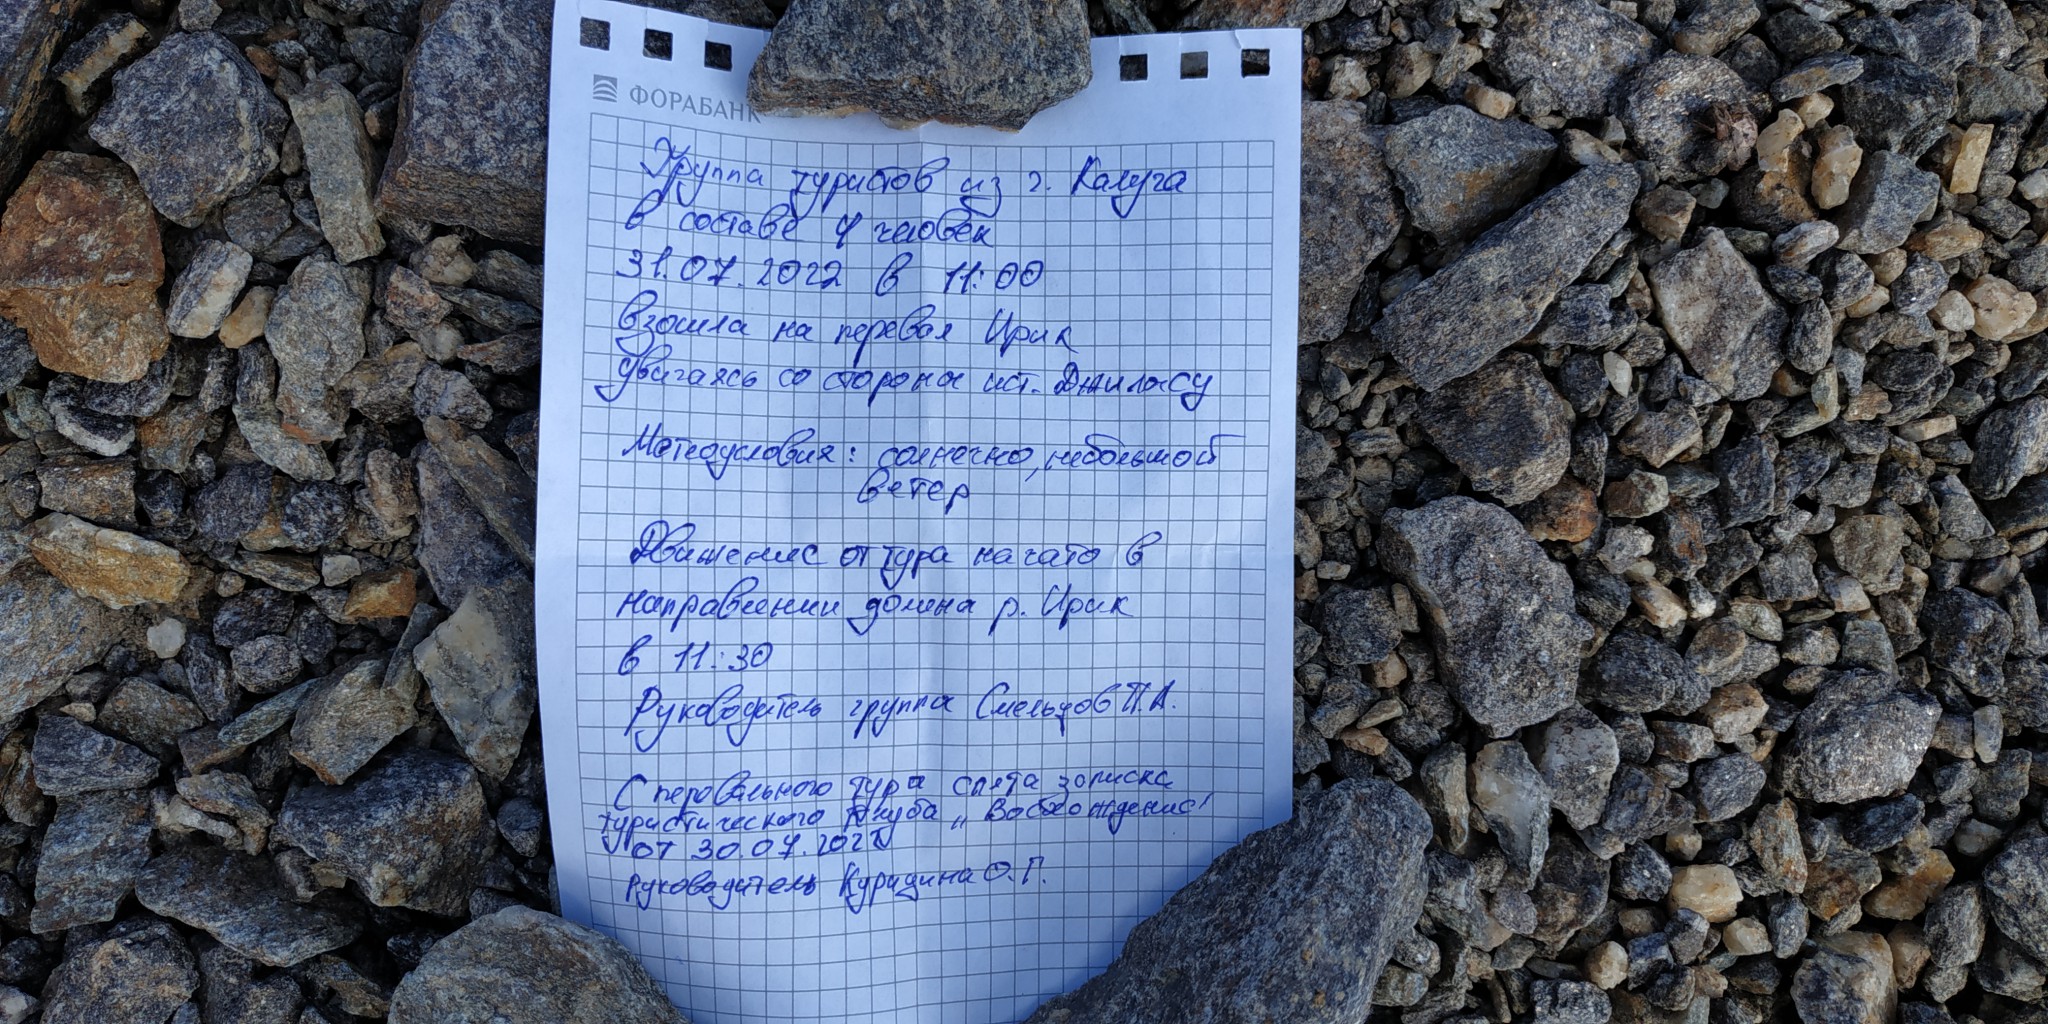 ФОРАБАНК
Группа туристов из г. Калуга
в составе 4 человек
31.07.2022 в 11:00
взошла на перевал Ирик
двигаясь со стороны ист. Джилысу
Метеоусловия: солнечно, небольшой
ветер
Движение от тура начато в
направлении долина р. Ирик
в 11:30
Руководитель группы Смельцов П.А.
С перевального тура снята записка
туристического клуба „Восхождение"
от 30.07.2022
руководитель Курицина О.Г.